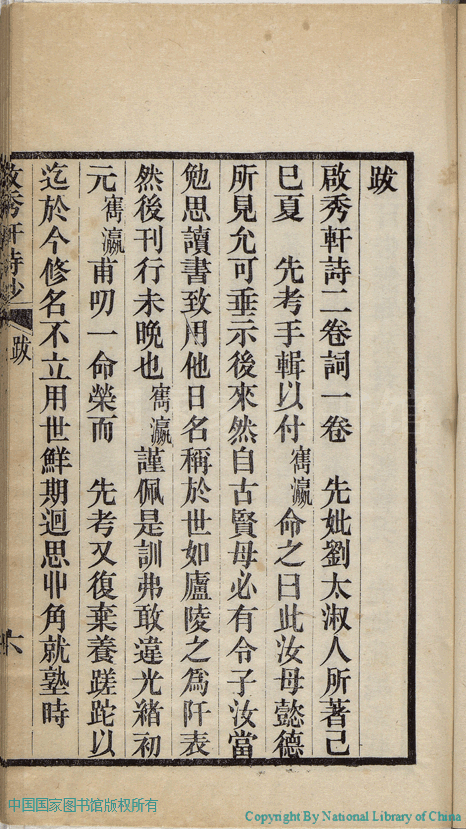 跋
啟秀軒詩二卷詞一卷　先妣劉太淑人所著己
巳夏　先考手輯以付寯瀛命之曰此汝母懿德
所見允可垂示後來然自古賢母必有令子汝當
勉思讀書致用他日名稱於世如廬陵之為阡表
然後刊行未晚也寯瀛謹佩是訓弗敢違光緒初
元寯瀛甫叨一命榮而　先考又復棄養蹉跎以
迄於今修名不立用世鮮期迴思丱角就塾時
啟秀軒詩鈔
跋
六
中国国家图书馆版权所有
Copyright By National Library of China